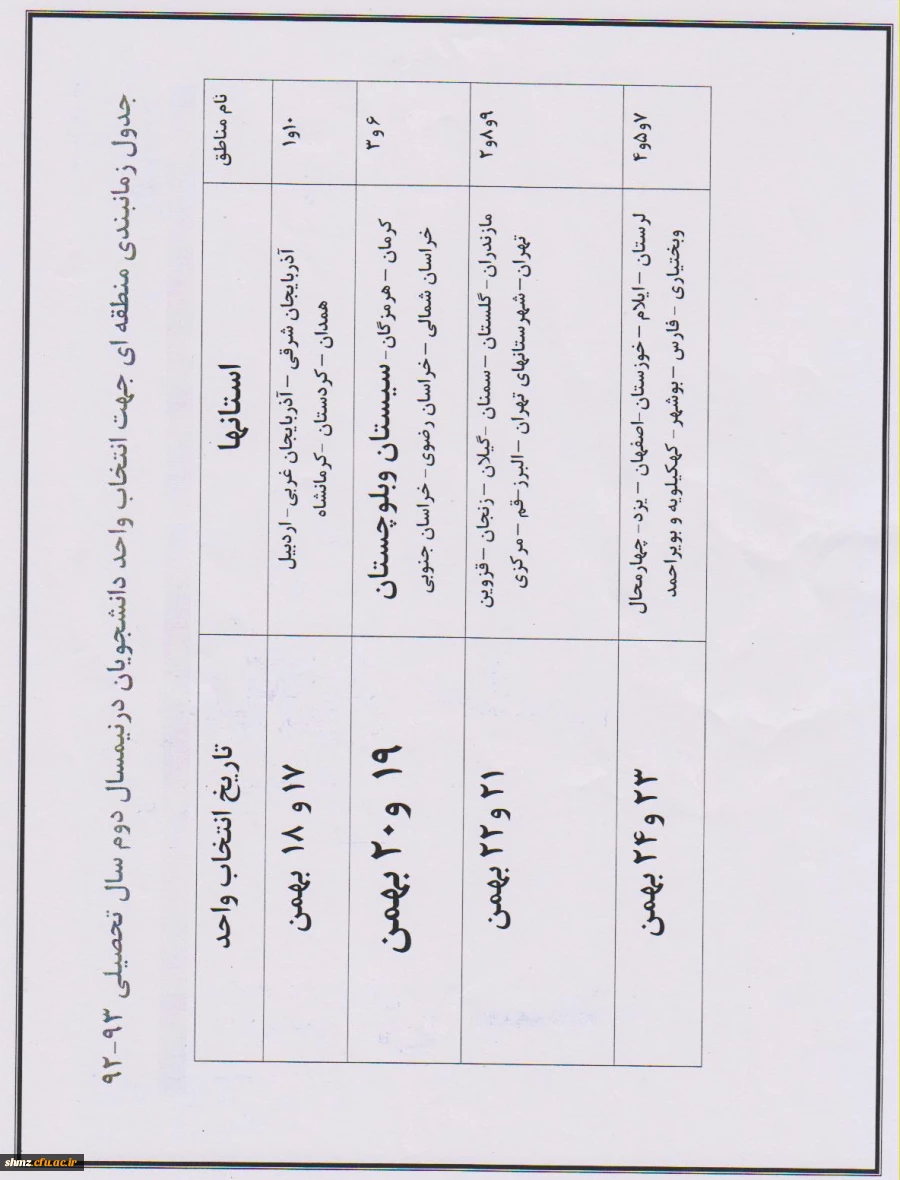 جدول زمانبندی منطقه ای جهت انتخاب واحد دانشجویان درنیمسال دوم سال تحصیلی ۹۳-۹۲
نام مناطق
استانها
تاریخ انتخاب واحد
۱۰و۱
آذربایجان شرقی – آذربایجان غربی - اردبیل
همدان – کردستان -کرمانشاه
۱۷ و ۱۸ بهمن
۶ و ۳
کرمان – هرمزگان- سیستان وبلوچستان
خراسان شمالی –خراسان رضوی- خراسان جنوبی
۱۹ و۲۰ بهمن
۹و۸و۲
مازندران- گلستان –سمنان -گیلان –زنجان –قزوین
تهران–شهرستانهای تهران –البرز–قم –مرکزی
۲۱ و۲۲ بهمن
۷و۵و۴
لرستان –ایلام – خوزستان-اصفهان – یزد- چهارمحال
وبختیاری - فارس –بوشهر- کهکیلویه و بویراحمد
۲۳ و۲۴ بهمن
shmz.cfu.ac.ir